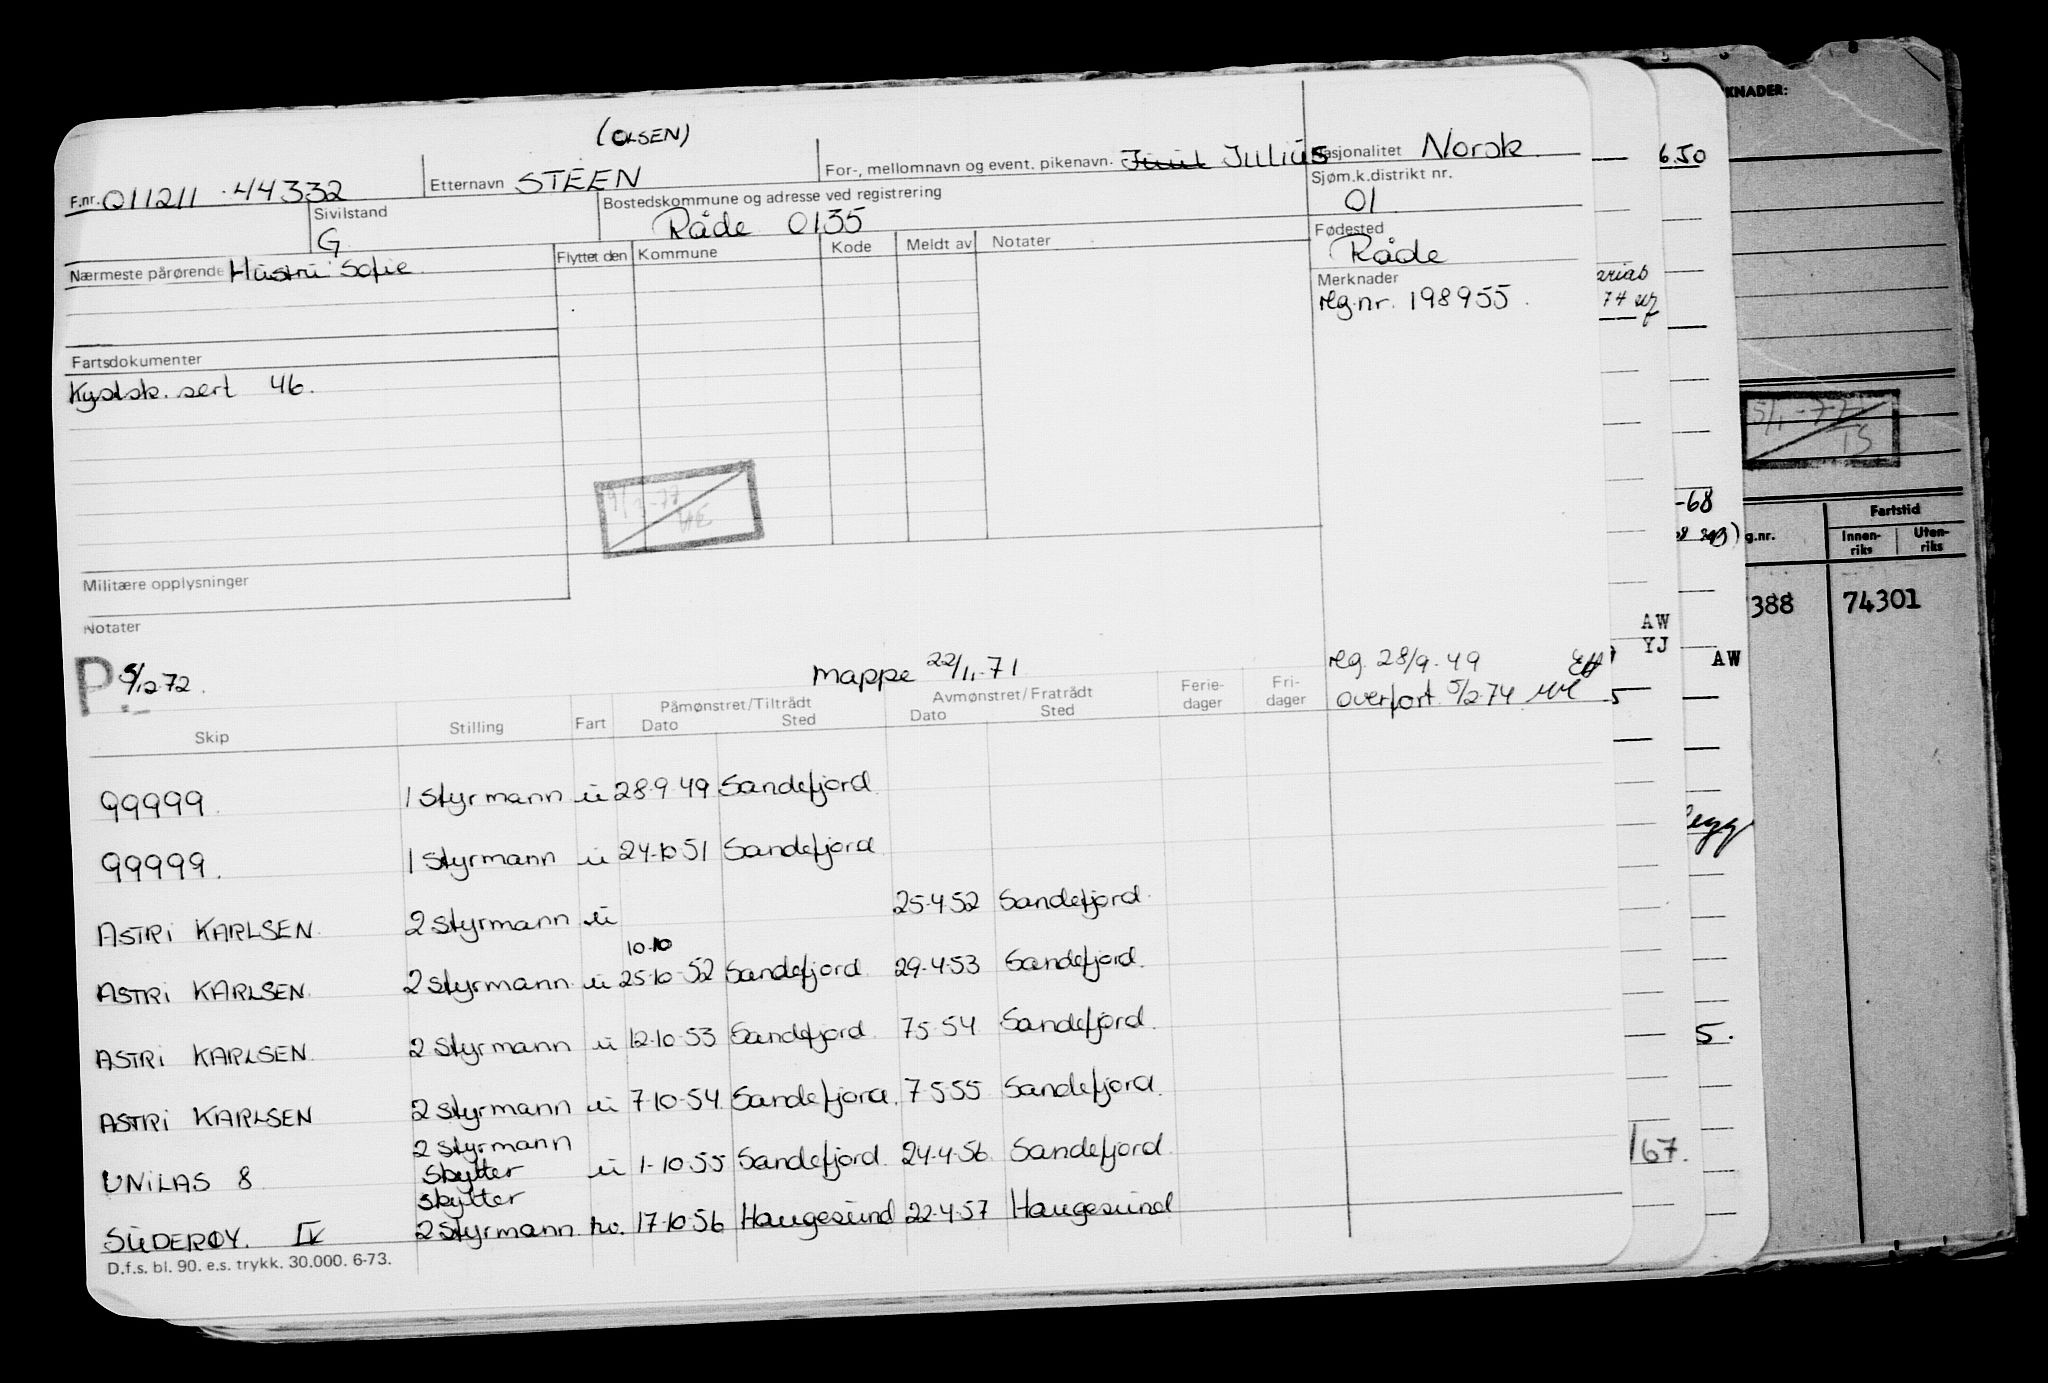 (OLSEN)
F.nr. 011211 44332 Etternavn STEEN For-, mellomnavn og event. pikenavn. JULIUS Nasjonalitet Norsk.
Sivilstand G Bostedskommune og adresse ved registrering Råde 0135 Sjøm.k.distrikt nr. 01
Nærmeste pårørende Hustru Sofie Flyttet den Kommune Kode Meldt av Notater Fødested Råde
Merknader
reg.nr. 198955.
Fartsdokumenter
Kystsk. sert 46.
Militære opplysninger
Notater
P 5/12-72. mappe 22/11-71 reg. 28/9-49
overført 5/2-74
Skip Stilling Fart Påmønstret/Tiltrådt Dato Sted Avmønstret/Fratrådt Dato Sted Ferie-dager Fri-dager
99999. 1 styrmann u 28-9-49 Sandefjord
99999. 1 styrmann u 24-10-51 Sandefjord
ASTRI KARLSEN. 2 styrmann u 25-4-52 Sandefjord.
10-10
ASTRI KARLSEN. 2 styrmann u 25-10-52 Sandefjord. 29-4-53 Sandefjord.
ASTRI KARLSEN. 2 styrmann u 12-10-53 Sandefjord. 7-5-54 Sandefjord.
ASTRI KARLSEN 2 styrmann u 7-10-54 Sandefjord. 7-5-55 Sandefjord.
2 styrmann
UNILAS 8 skytter u 1-10-55 Sandefjord. 24-4-56 Sandefjord.
skytter
SUDERØY. IV 2 styrmann. hv. 17-10-56 Haugesund 22-4-57 Haugesund
D.f.s. bl. 90. e.s. trykk. 30.000. 6-73.
6.50
74
-68
AW
YJ
AW
5
5.
67.
KNADER:
g.nr. Fartstid
Innen-riks Uten-riks
388 74301